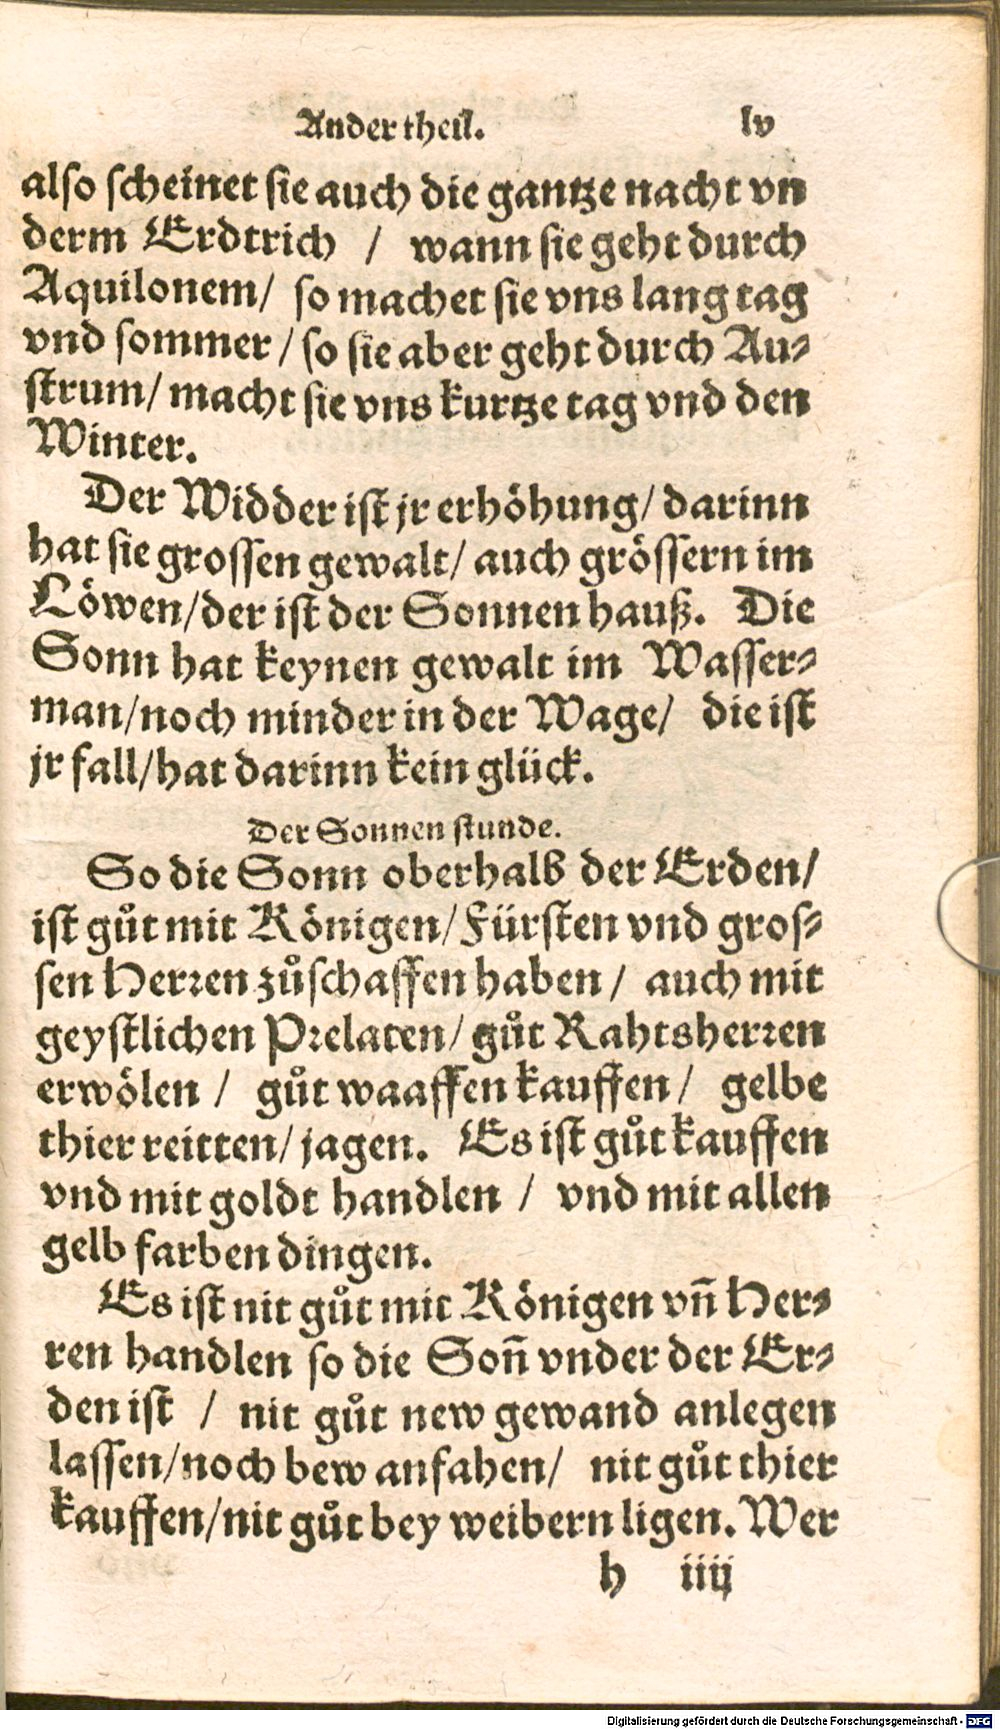 Ander theil. lv
also scheinet sie auch die gantze nacht vn
derm Erdtrich / wann sie geht durch
Aquilonem/ so machet sie vns lang tag
vnd sommer / so sie aber geht durch Au⸗
strum/ macht sie vns kurtze tag vnd den
Winter.
Der Widder ist jr erhöhung/ darinn
hat sie grossen gewalt/ auch grössern im
Löwen/der ist der Sonnen hauß. Die
Sonn hat keynen gewalt im Wasser⸗
man/noch minder in der Wage/ die ist
jr fall/hat darinn kein glück.
Der Sonnen stunde.
So die Sonn oberhalb der Erden/
ist gůt mit Königen/Fürsten vnd gros⸗
sen Herren zůschaffen haben / auch mit
geystlichen Prelaten/ gůt Rahtsherren
erwölen / gůt waaffen kauffen / gelbe
thier reitten/ jagen. Es ist gůt kauffen
vnd mit goldt handlen / vnd mit allen
gelb farben dingen.
Es ist nit gůt mit Königen vñ Her⸗
ren handlen so die Soñ vnder der Er⸗
den ist / nit gůt new gewand anlegen
lassen/noch bew anfahen/ nit gůt thier
kauffen/nit gůt bey weibern ligen. Wer
h iiij
Digitalisierung gefördert durch die Deutsche Forschungsgemeinschaft - DFG